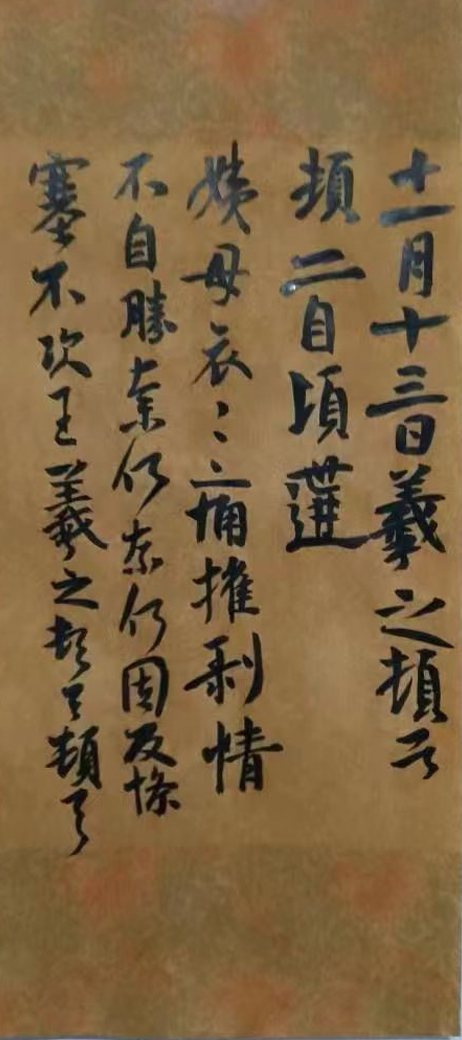 十一月十三日羲之頓首
頓首頃遘
姨母哀〻痛摧剥情
不自勝奈何奈何因反慘
塞不次王羲之頓首頓首